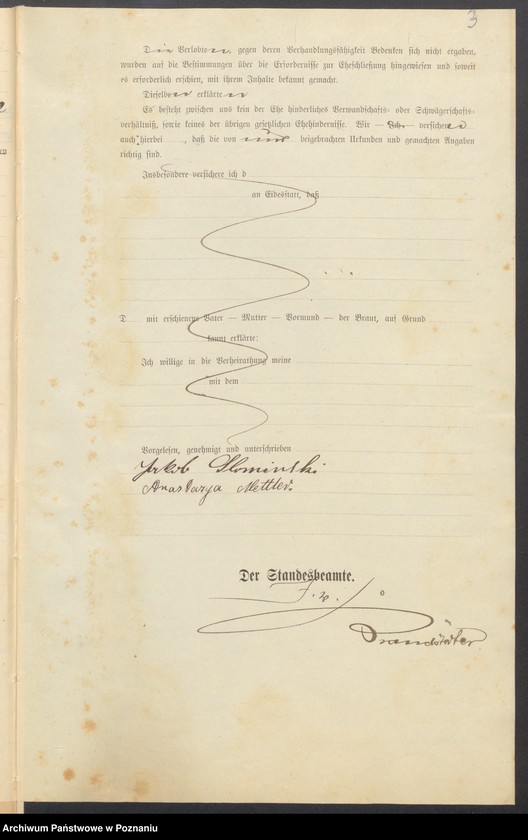 3
Die Verlobten, gegen deren Verhandlungsfähigkeit Bedenken sich nicht ergaben,
wurden auf die Bestimmungen über die Erfordernisse zur Eheschließung hingewiesen und soweit
es erforderlich erschien, mit ihrem Inhalte bekannt gemacht.
Dieselben erklärten
Es besteht zwischen uns kein der Ehe hinderliches Verwandschafts- oder Schwägerschafts-
verhältniß, sowie keines der übrigen gesetzlichen Ehehindernisse. Wir — Ich — versichern
auch hierbei , daß die von uns beigebrachten Urkunden und gemachten Angaben
richtig sind.
Insbesondere versichere ich d
an Eidesstatt, daß
D mit erschienene Vater — Mutter — Vormund — der Braut, auf Grund
kannt erklärte:
Ich willige in die Verheirathung meine
mit dem
Vorgelesen, genehmigt und unterschrieben
Jakob Slominski
Anastazya Mettler.
Der Standesbeamte.
Brandstäter
Archiwum Państwowe w Poznaniu